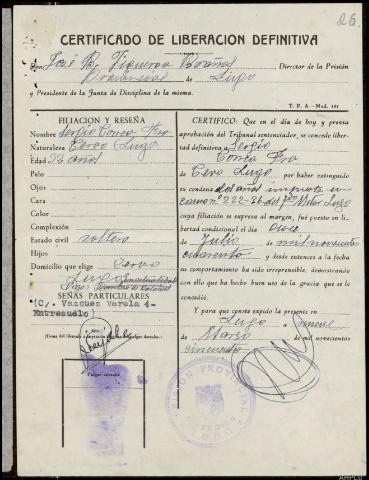 26
CERTIFICADO DE LIBERACION DEFINITIVA
Don José B. Figueroa Bouños, Director de la Prisión
Provincial de Lugo
y Presidente de la Junta de Disciplina de la misma.
T. P. A.-Mod. 141
FILIACION Y RESEÑA
Nombre Sergio Correa Fra
Naturaleza Cervo Lugo
Edad años
Pelo
Ojos
Cara
Color
Complexión
Estado civil soltero
Hijos
Domicilio que elige Cervo
Lugo
Vigo,
SEÑAS PARTICULARES
(C/. Vazquez Varela 4-
Entresuelo)
(Firma del liberado o impresión dactilar del pulgar derecho.)
Pulgar derecho
CERTIFICO: Que en el día de hoy y previa
aprobación del Tribunal sentenciador, se concede libertad
definitiva a Sergio
Correa Fra
de Cervo Lugo por haber extinguido
su condena dos años impuesta en
causa n.º 222-36 del Lugo
cuya filiación se expresa al margen, fué puesto en libertad
condicional el once
de Julio de mil novecientos
cuarenta y desde entonces a la fecha
su comportamiento ha sido irreprensible, demostrando
con ello que ha hecho buen uso de la gracia que se le
concedió.
Y para que conste expido la presente en
Lugo a nueve
de Marzo de mil novecientos
cincuenta
PRISION PROVINCIAL
LUGO
AHPLU